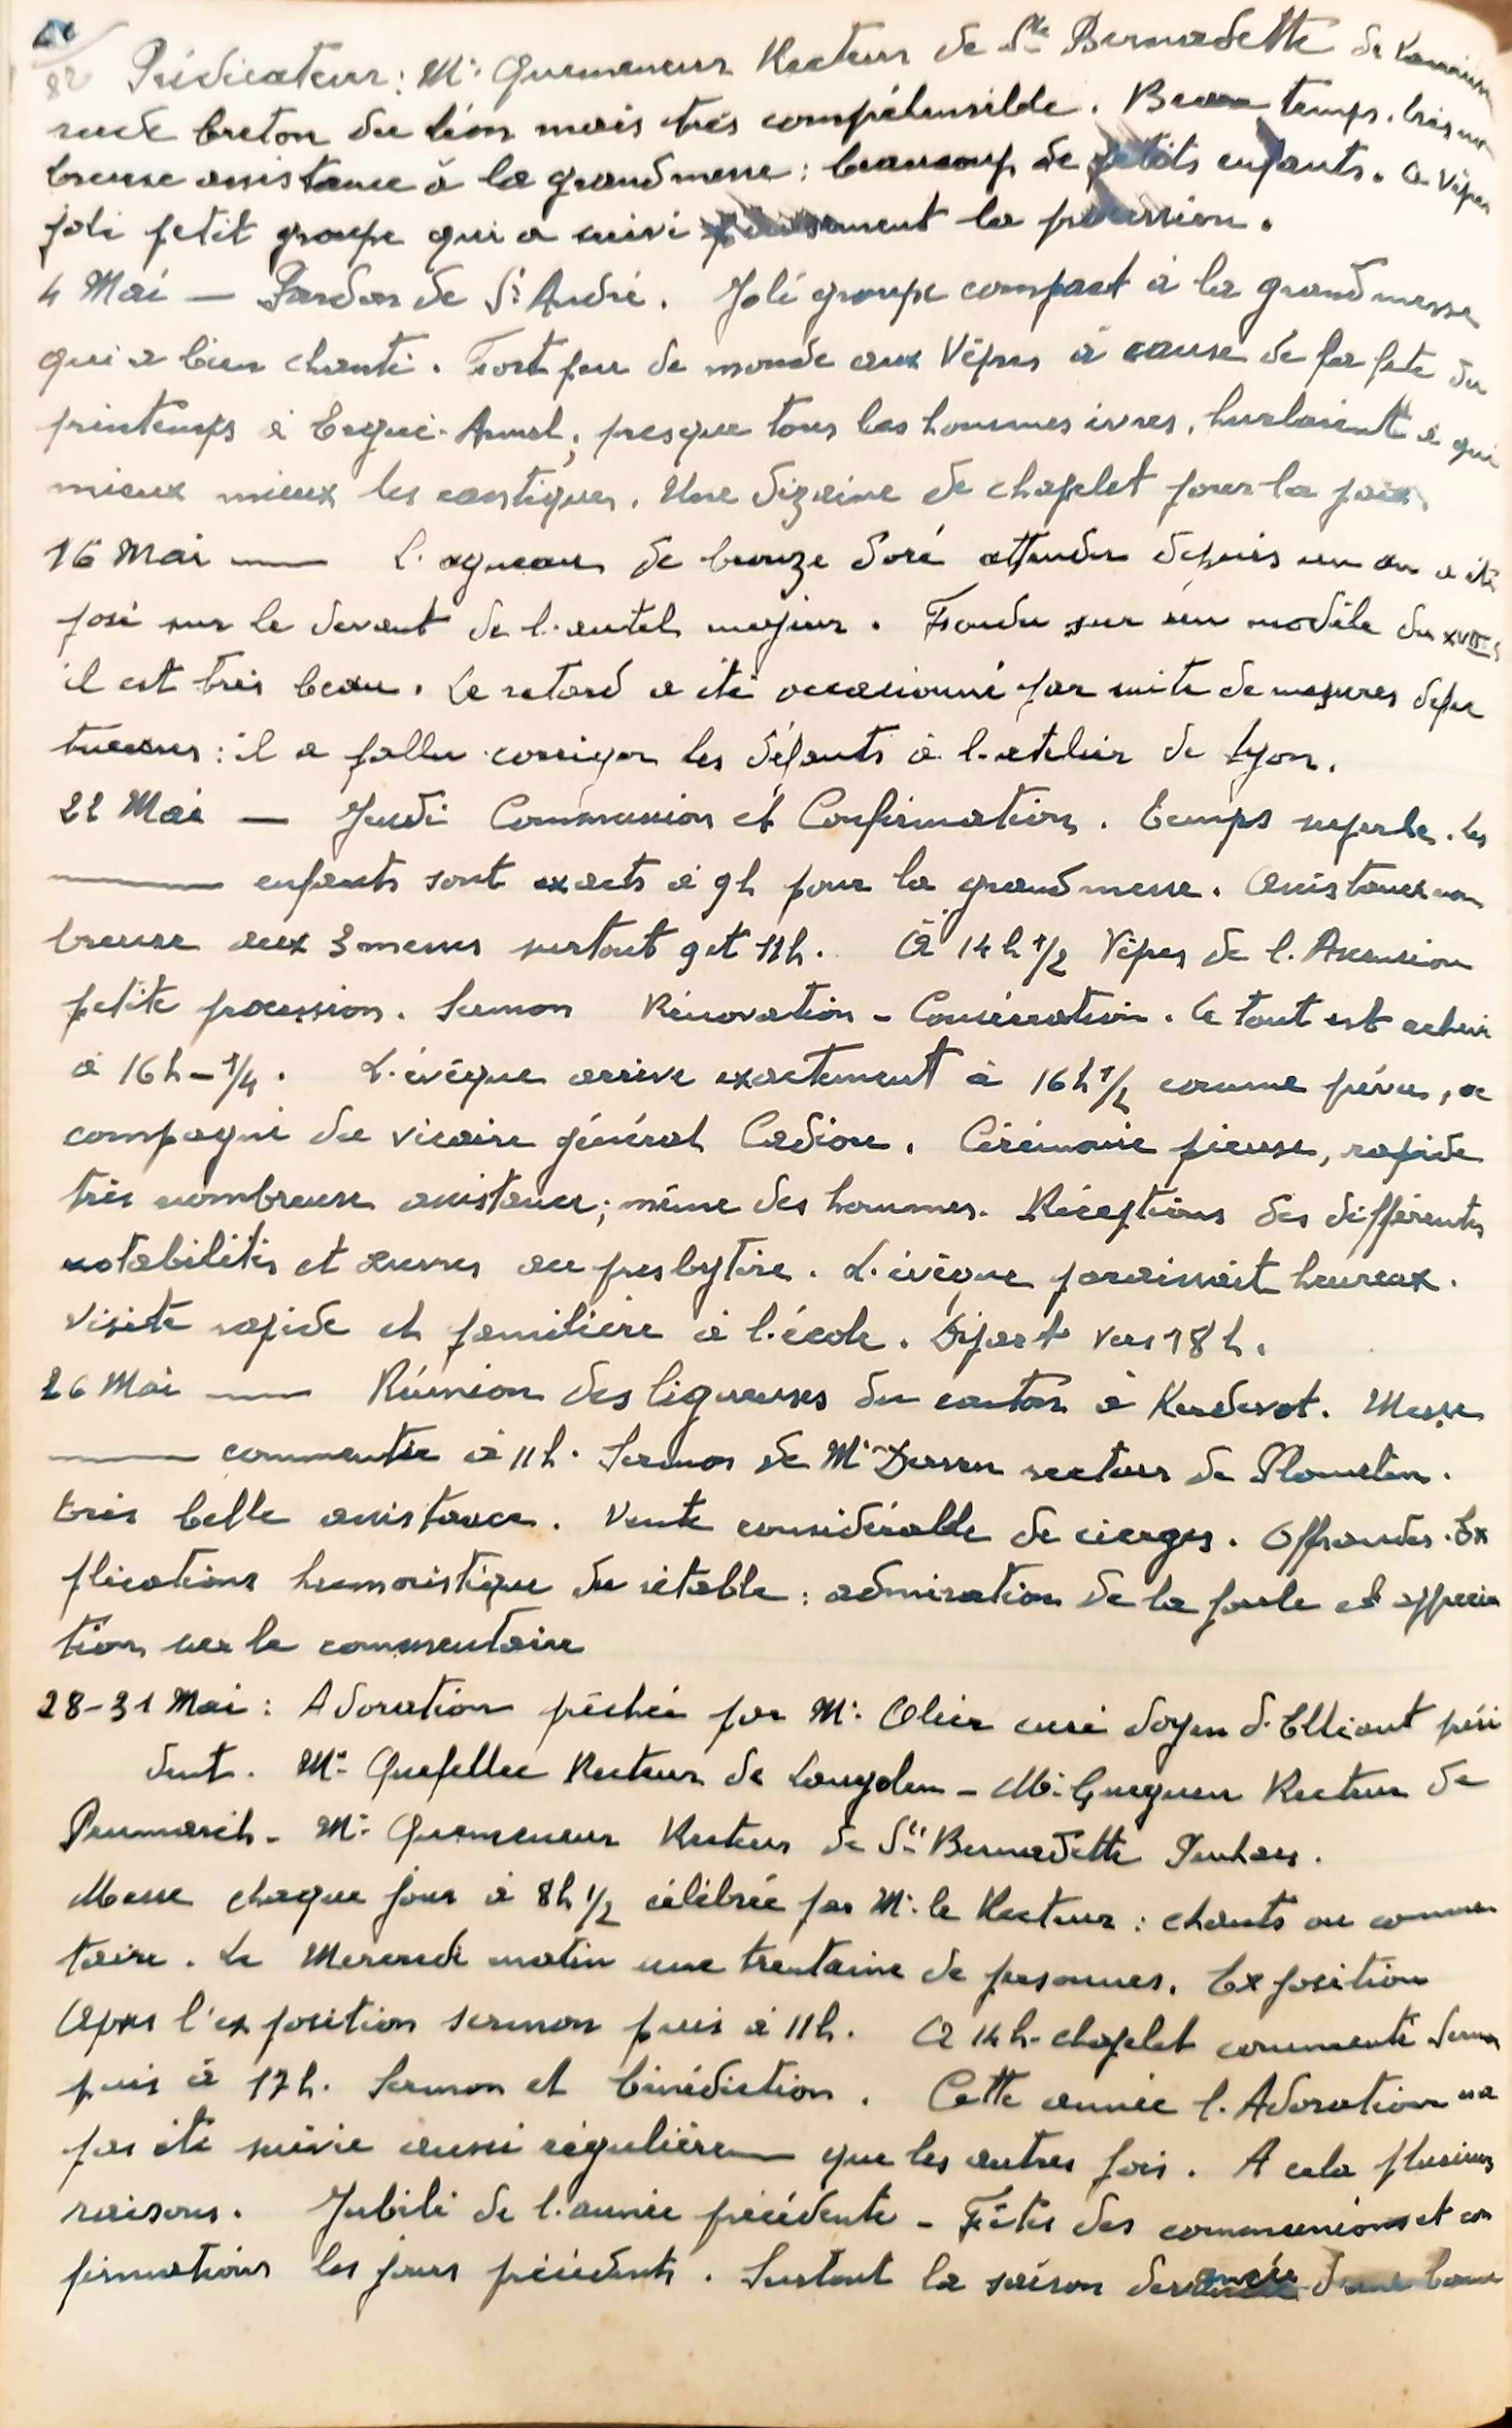 82 Prédicateur : Mr Quemeneur Recteur de Ste Bernadette de
rude breton du Léon mais très compréhensible. Beau temps. très nom
breuse assistance à la grand messe : beaucoup de petits enfants. A Vêpres
joli petit groupe qui a suivi pieusement la procession.
4 Mai — Pardon de St André. Joli groupe compact à la grand messe
qui a bien chanté. Fort peu de monde aux Vêpres à cause de la fête du
printemps à Ergué-Armel ; presque tous les hommes ivres, hurlaient à qui
mieux mieux les cantiques. Une dizaine de chapelet pour la paix.
16 Mai — L'agneau de bronze doré attendu depuis un an a été
posé sur le devant de l'autel majeur. Fondu sur un modèle du XVIIe s
il est très beau. Le retard a été occasionné par suite de mesures défec
tueuses : il a fallu corriger les défauts à l'atelier de Lyon.
22 Mai — Jeudi Communion et Confirmation. Temps superbe. les
enfants sont exacts à 9h pour la grand messe. Assistance nom
breuse aux 3 messes surtout 9 et 11h. À 14h 1/2 Vêpres de l'Ascension
petite procession. Sermon Rénovation - Consécration. Le tout est achevé
à 16h - 1/4. L'évêque arrive exactement à 16h 1/2 comme prévu, ac
compagné du vicaire général Cadiou. Cérémonie pieuse, rapide
très nombreuse assistance ; même des hommes. Réceptions des différentes
notabilités et œuvres au presbytère. L'évêque paraissait heureux.
Visite rapide et familière à l'école. Départ vers 18h.
26 Mai — Réunion des ligueuses du canton à Kerdevot. Messe
commentée à 11h. Sermon de Mr recteur de Plomelin.
très belle assistance. Vente considérable de cierges. Offrandes. Ex
plications humoristique du rétable : admiration de la foule et apprécia
tion sur le commentaire
28-31 Mai : Adoration prêchée par Mr Olier curé doyen d'Elliant prési
dent. Mr Quefellec Recteur de Langolen - Mr Gueguen Recteur de
Penmarch - Mr Quemeneur Recteur de Ste Bernadette Penhars.
Messe chaque jour à 8h 1/2 célébrée par Mr le Recteur : chants ou commen
taire. Le Mercredi matin une trentaine de personnes. Exposition
Après l'exposition sermon puis à 11h. A 14h - chapelet commenté sermon
puis à 17h. Sermon et bénédiction. Cette année l'Adoration n'a
pas été suivie aussi régulièrem que les autres fois. A cela plusieurs
raisons. Jubilé de l'année précédente - Fêtes des communions et con
firmations les jours précédents. Surtout la saison d'une bonne